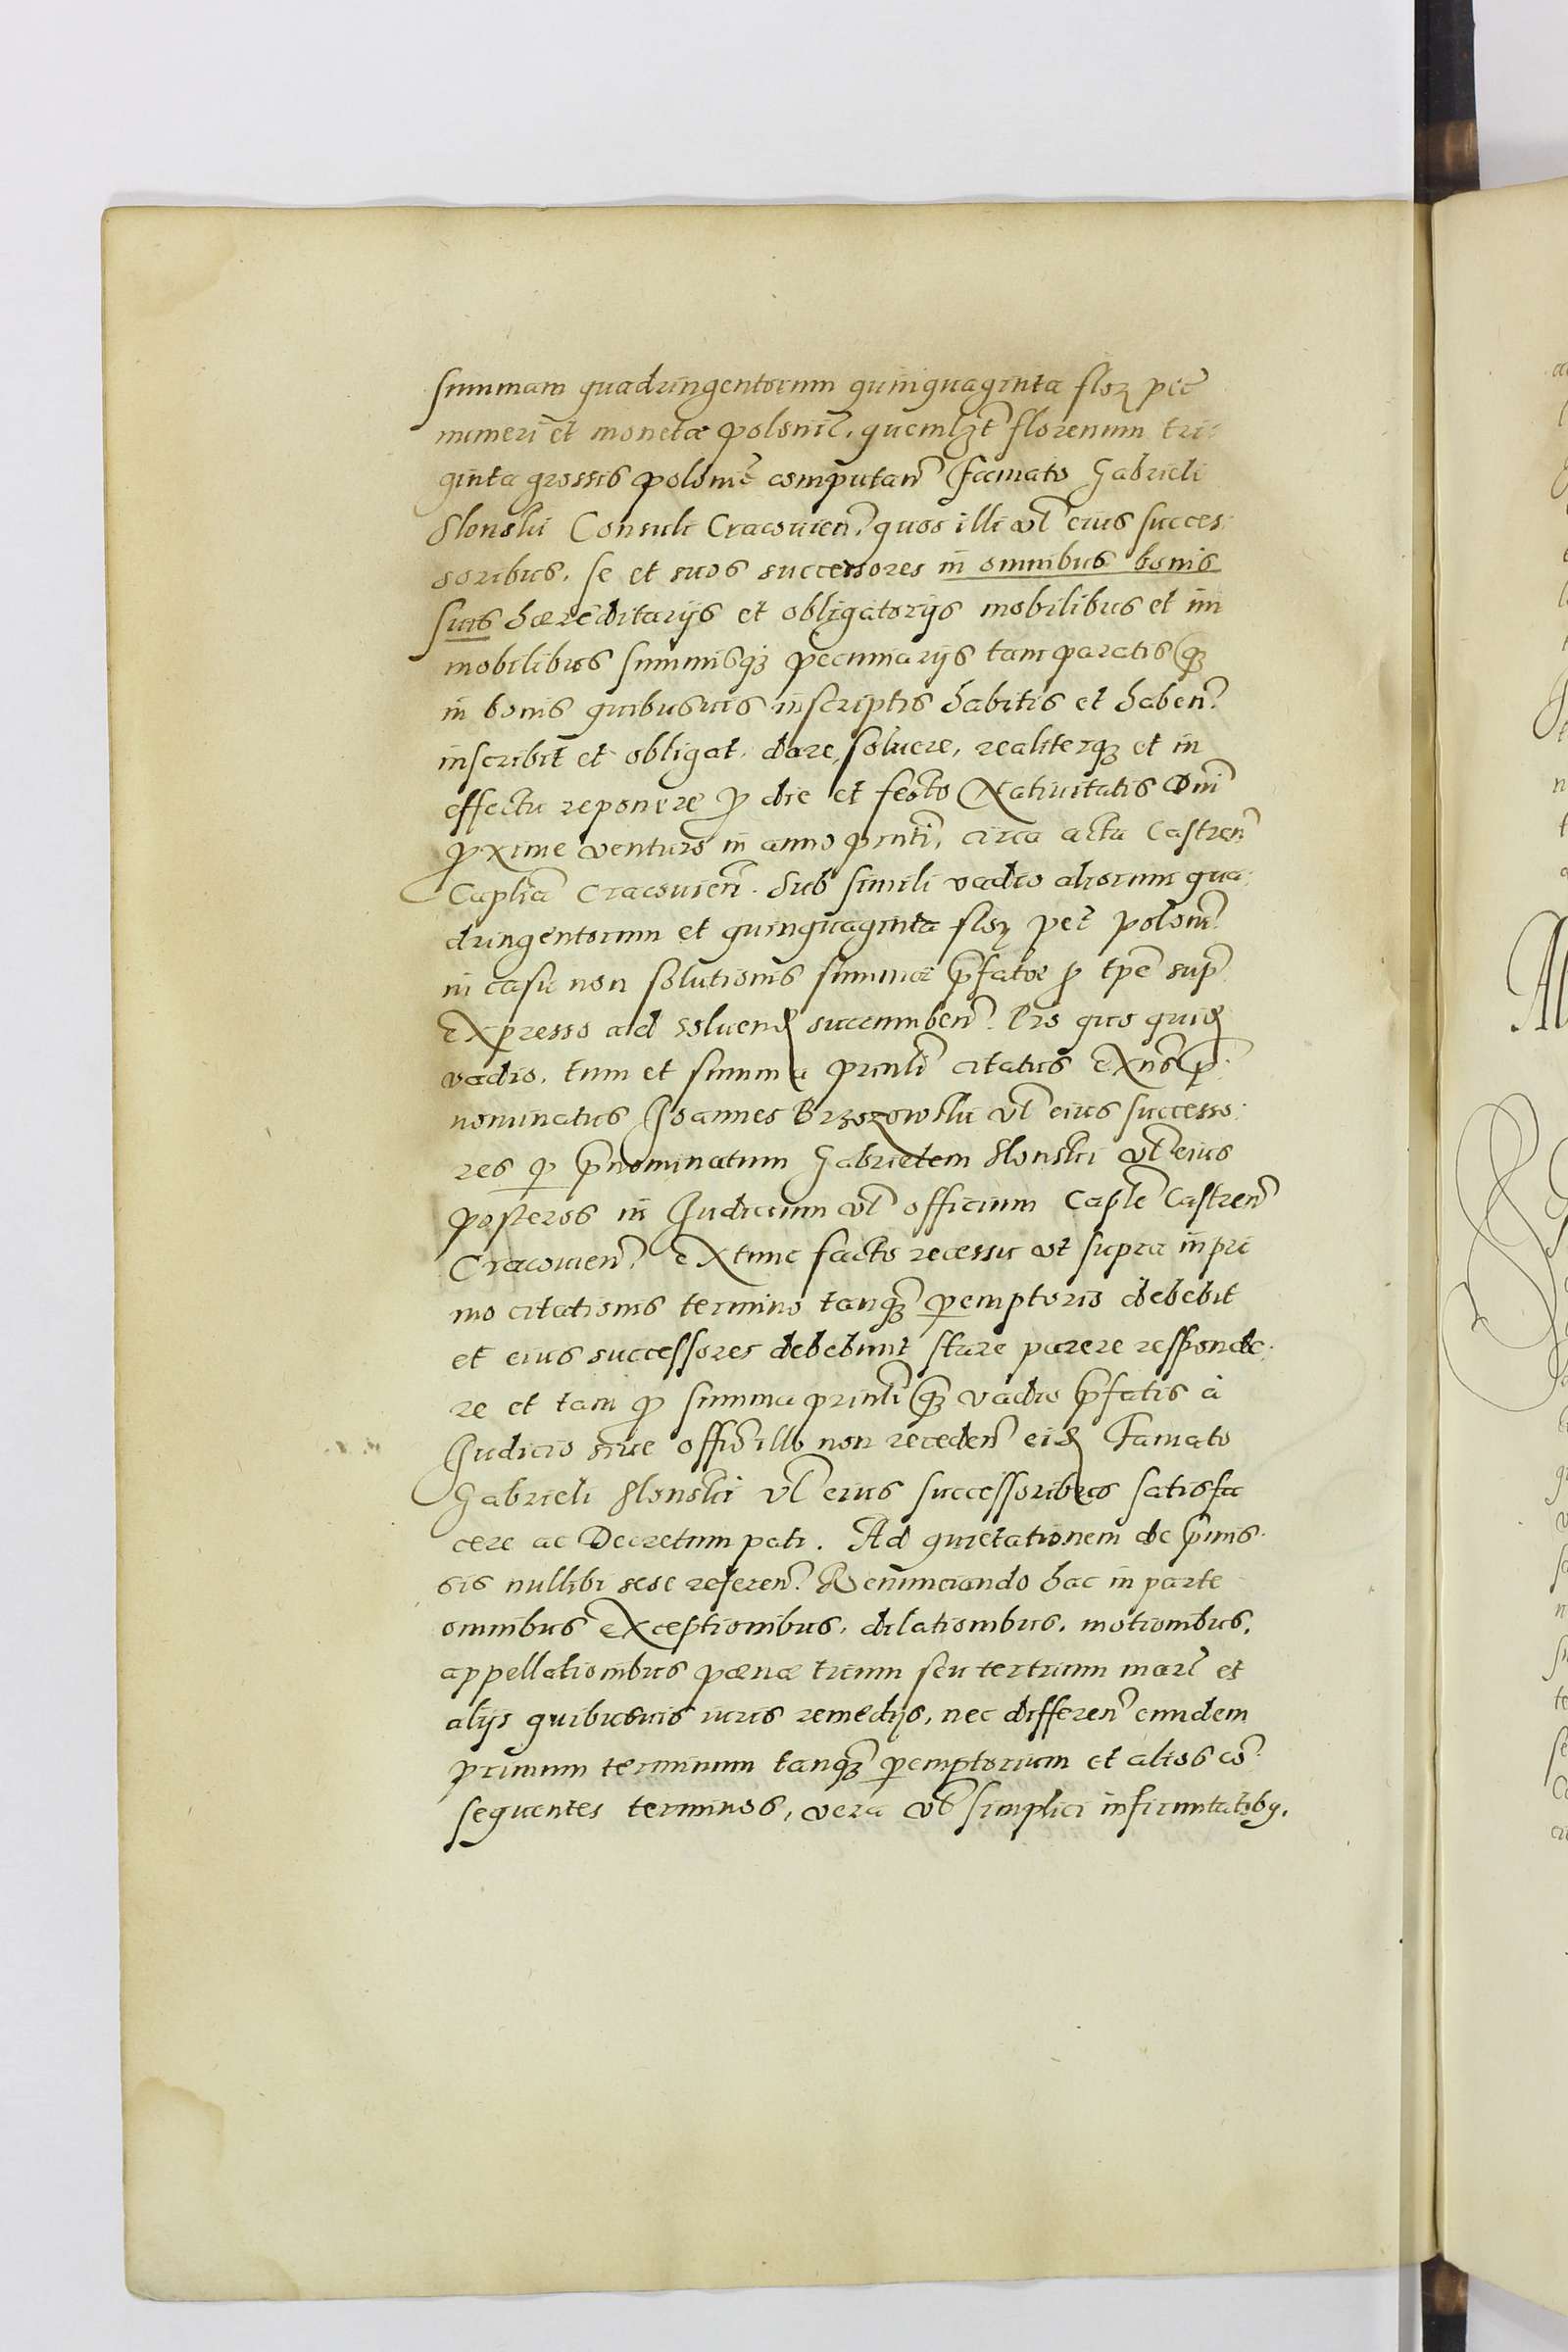 summam quadringentorum quinquaginta flor pec̃
numeri et monetæ polonic̃, quemlꝫt florenum tri
ginta grossis polonic̃ computañ famato Gabrieli
Slonski Consuli Cracovieñ, quos illi vl̃ eius succes:
soribus, se et suos successores in omnibus bonis
suis hæreditarijs et obligatorijs mobilibus et im
mobilibus summisqꝫ pecuniarijs tam paratis qꝫ
in bonis quibusuis inscriptis habitis et habeñ
inscribit et obligat, dare, soluere, realiterqꝫ et in
effectu reponere ꝓ die et festo Natiuitatis Dñi
ꝓxime venturo in anno pñti, circa acta Castreñ
Capl̃ia Cracovieñ. Sub simili vadio aliorum qua:
dringentorum et quinquaginta flor pec̃ poloñ
in casu non solutionis summæ p̃fatæ ꝓ tp̃e sup̃
expresso ad soluend succumbeñ. Pro quo quid
vadio, tum et summa prinl̃i citatus exñs p̃:
nominatus Joannes Brzozowski vl̃ eius successo:
res ꝑ p̃nominatum Gabrielem Slonski vl̃ eius
posteros in Judicium vl̃ officium Capl̃e Castreñ
Cracovieñ. Extunc facto recessu vt supra in pri
mo citationis termino tanqꝫ ꝑemptorio debebit
et eius successores debebunt stare parere responde:
re et tam ꝓ summa prinl̃i qꝫ vadio p̃fatis à
Judicio siue offic̃ illo non recedeñ eid Famato
Gabrieli Slonski vl̃ eius successoribus satisfa
cere ac Decretum pati. Ad quietationem de p̃mis:
sis nullibi sese refereñ. Renunciando hac in parte
omnibus exceptionibus, dilationibus, motionibus,
appellationibus pœnæ trium seu tertium marc̃ et
alijs quibusuis iuris remedijs, nec differeñ eundem
primum terminum tanqꝫ ꝑemptorium et alios cõ
sequentes terminos, vera vl̃ simplici infirmitatibꝰ,